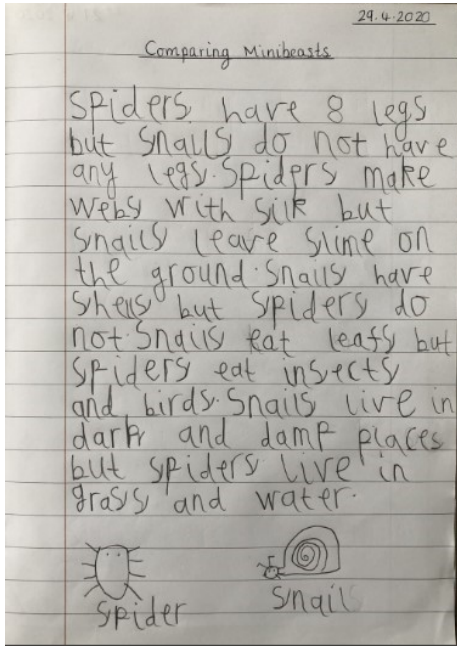 29.4.2020
Comparing Minibeasts
Spiders have 8 legs
but snails do not have
any legs. Spiders make
webs with silk but
snails leave slime on
the ground. Snails have
shells but spiders do
not. Snails eat leafs but
spiders eat insects
and birds. Snails live in
dark and damp places
but spiders live in
grass and water.
Spider
Snail